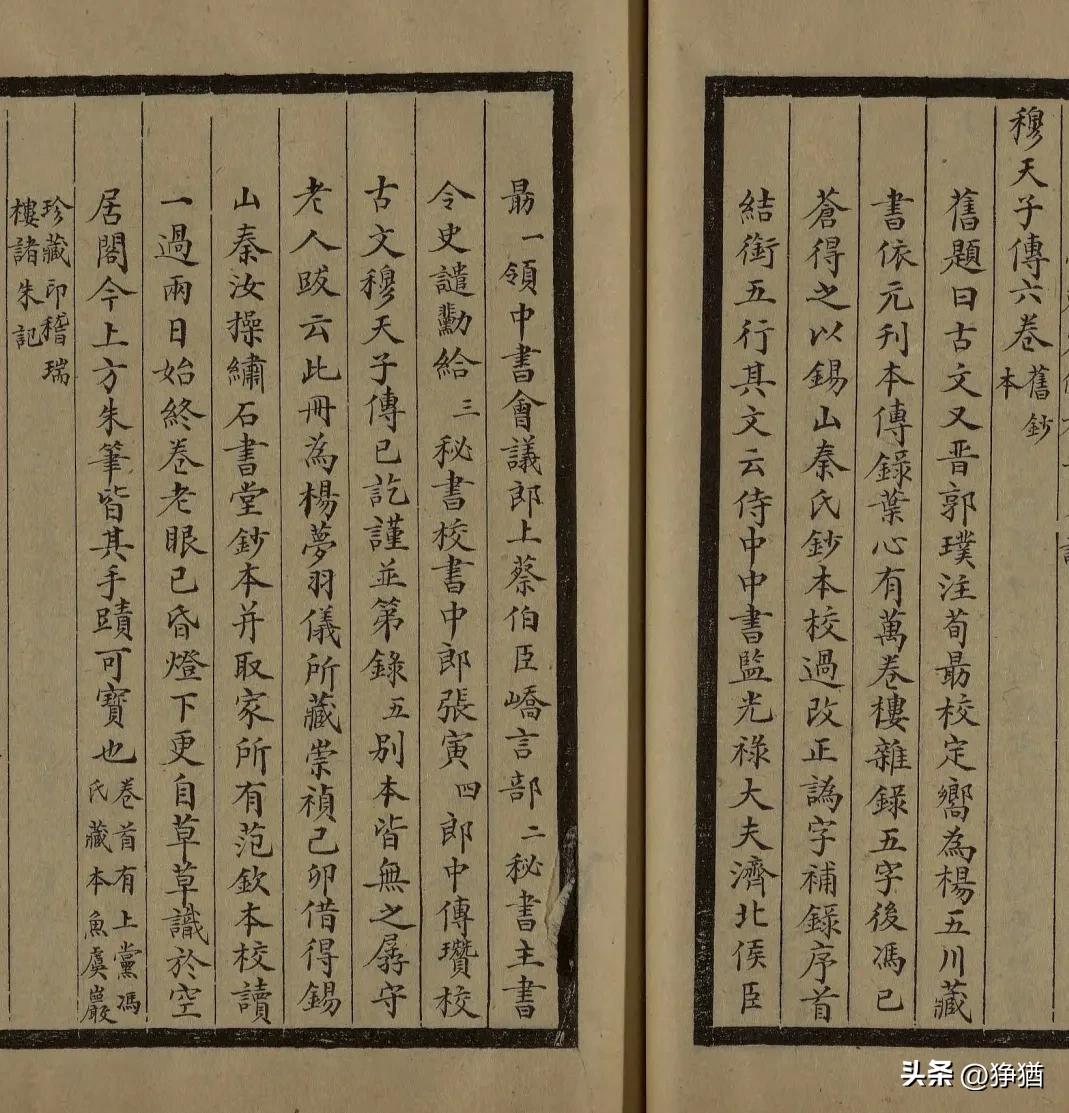 穆天子傳六卷舊鈔本
舊題曰古文又晋郭璞注荀朂校定嚮為楊五川藏
書依元刊本傳錄葉心有萬卷樓雜錄五字後馮已
蒼得之以錫山秦氏鈔本校過改正譌字補錄序首
結銜五行其文云侍中中書監光祿大夫濟北侯臣
朂一領中書會議郎上蔡伯臣嶠言部二秘書主書
令史譴勳給三秘書校書中郎張寅四郎中傳瓚校
古文穆天子傳已訖謹並第錄五別本皆無之孱守
老人跋云此冊為楊夢羽儀所藏崇禎己卯借得錫
山秦汝操繡石書堂鈔本并取家所有范欽本校讀
一過兩日始終卷老眼已昏燈下更自草草識於空
居閣今上方朱筆皆其手蹟可寶也卷首有上黨馮氏藏本魚虞巖
珍藏印稽瑞樓諸朱記
头条 @狰猶